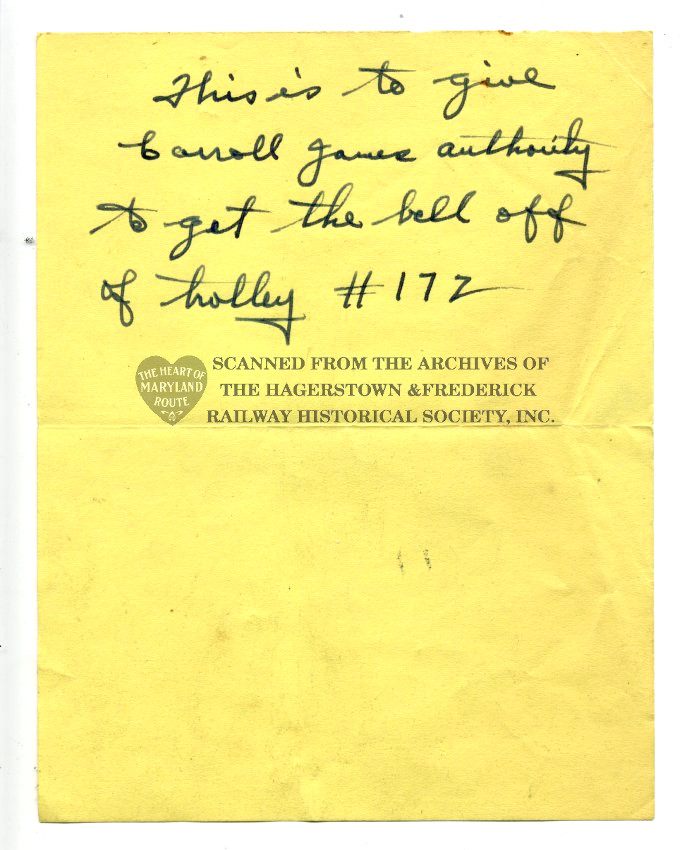 This is to give
Carroll James authority
to get the bell off
of trolley #172
THE HEART OF
MARYLAND
ROUTE
SCANNED FROM THE ARCHIVES OF
THE HAGERSTOWN &FREDERICK
RAILWAY HISTORICAL SOCIETY, INC.